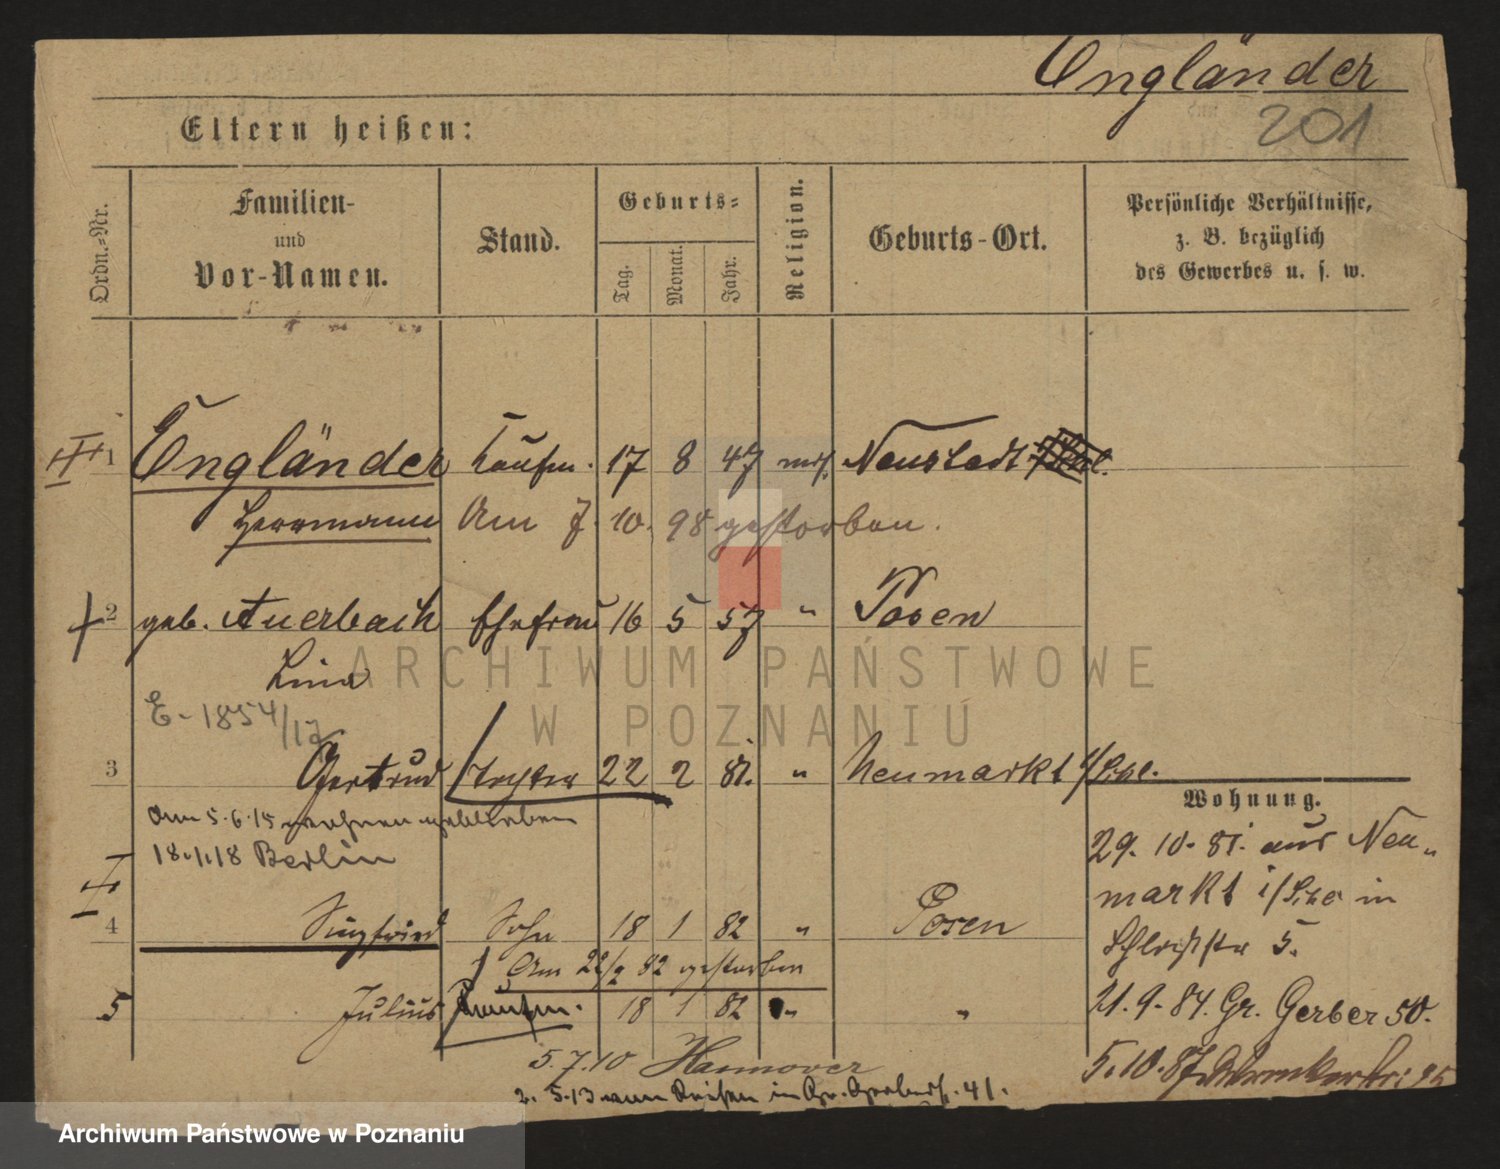 Engländer
201
Eltern heißen:
Ordn.-Nr.
Familien-
und
Vor-Namen.
Stand.
Geburts-
Tag.
Monat.
Jahr.
Religion.
Geburts-Ort.
Persönliche Verhältnisse,
z. B. bezüglich
des Gewerbes u. s. w.
1 Engländer Kaufm. 17 8 47 mos. Neustadt
Herrmann Am 7. 10. 98 gestorben.
2 geb. Auerbach Ehefrau 16 5 57 " Posen
Lina
E-1854/12
3 Gertrud Tochter 22 2 81. " Neumarkt i/Schl.
Am 5.6.15 geblieben
18.1.18 Berlin
4 Siegfried Sohn 18 1 82 " Posen
Am 22/2 82 gestorben
5 Julius Kaufm. 18 1 82 " "
5.7.10 Hannover
2. 5.13 von Reisen in Gr. Gerberst. 41.
Wohnung.
29. 10. 81. aus Neu-
markt i/Schl in
Schloßstr 5.
21. 9. 84. Gr. Gerber 50.
5. 10. 87
ARCHIWUM PAŃSTWOWE
W POZNANIU
Archiwum Państwowe w Poznaniu